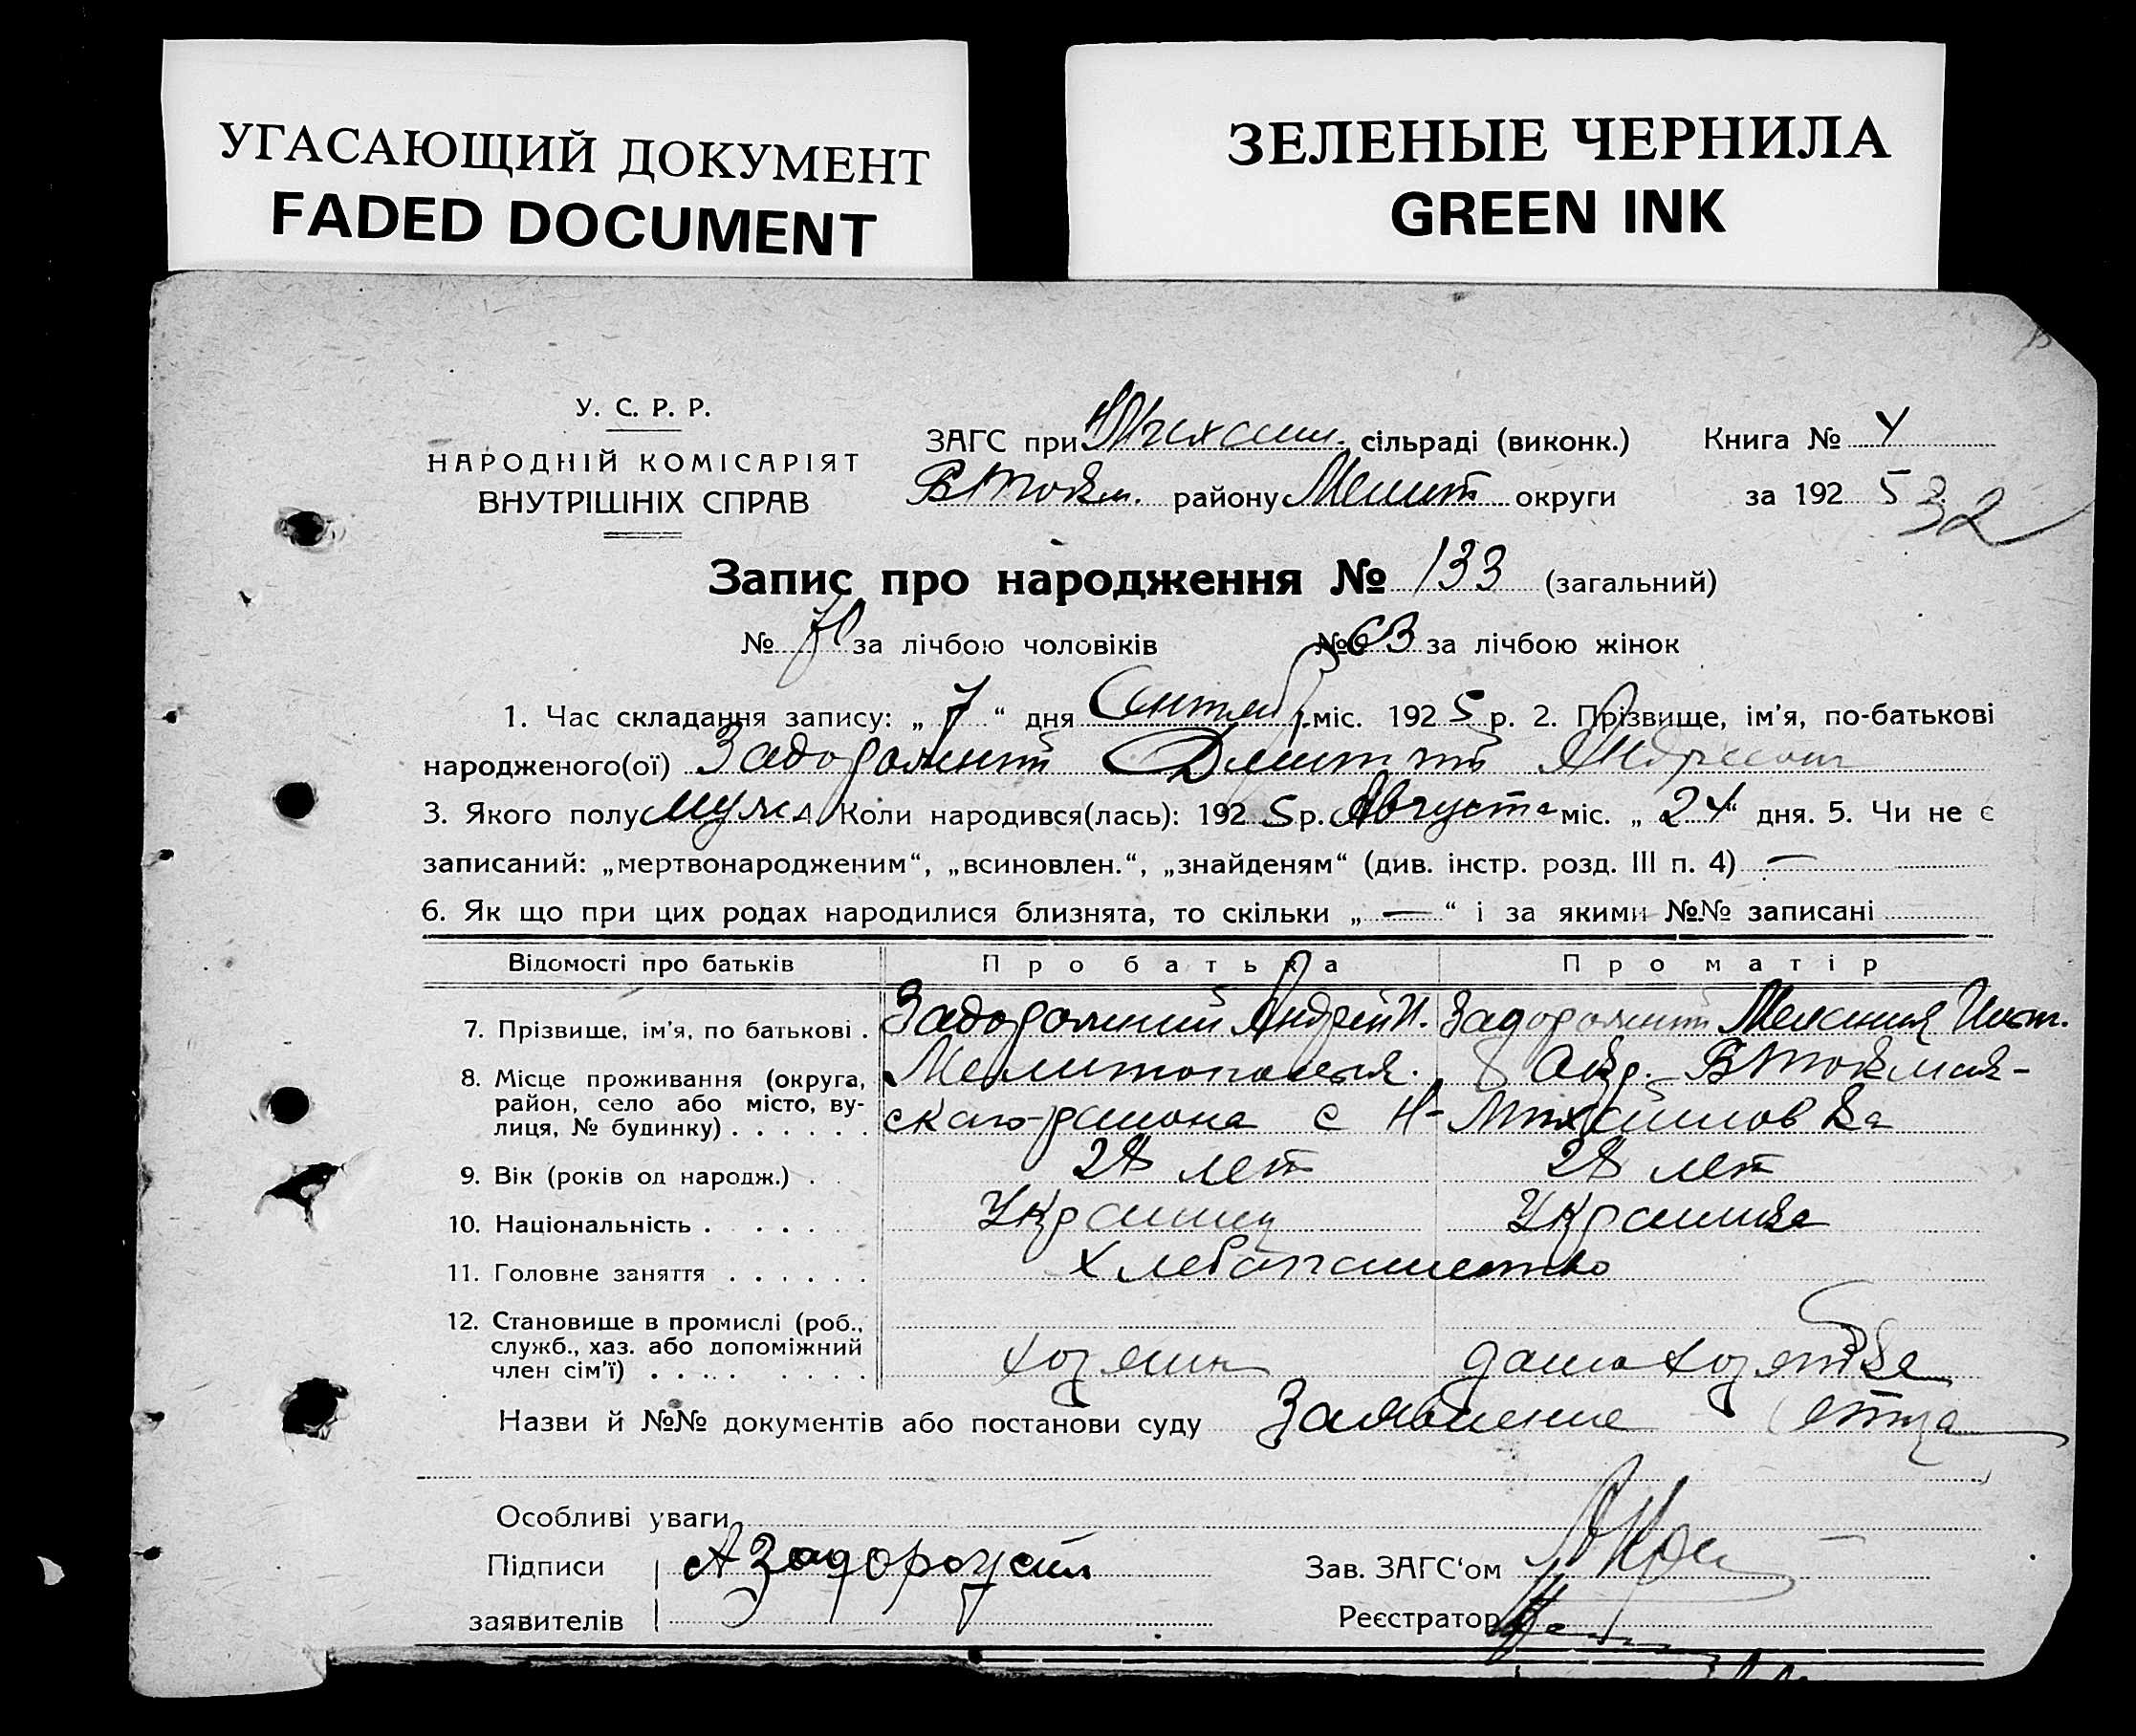 УГАСАЮЩИЙ ДОКУМЕНТ
FADED DOCUMENT
ЗЕЛЕНЫЕ ЧЕРНИЛА
GREEN INK
У. С. Р. Р.
НАРОДНІЙ КОМІСАРІЯТ
ВНУТРІШНІХ СПРАВ
ЗАГС при сільраді (виконк.) Книга № 4
ВТокм. району Мелит округи за 192 5
32
Запис про народження № 133 (загальний)
№ 70 за лічбою чоловіків № 63 за лічбою жінок
1. Час складання запису: „ 7 “ дня Сентябр міс. 192 5 р. 2. Прізвище, ім'я, по-батькові
народженого(ої) Задорожний Дмитрий
3. Якого полу муж 4. Коли народився(лась): 192 5 р. Августа міс. „ 24 “ дня. 5. Чи не є
записаний: „мертвонародженим“, „всиновлен.“, „знайденям“ (див. інстр. розд. III п. 4) —
6. Як що при цих родах народилися близнята, то скільки „ — “ і за якими №№ записані
Відомості про батьків Про батька Про матір
7. Прізвище, ім'я, по батькові . Задорожний Андрей И. Задорожний Мелания
8. Місце проживання (округа,
район, село або місто, ву-
лиця, № будинку) . . . . . .
Мелитопольск. Окр. ВТокмак-
скаго района с Н-Михайловка
9. Вік (років од народж.) . 28 лет 28 лет
10. Національність . . . . . Украинец Украинка
11. Головне заняття . . . . . . Хлебопашество
12. Становище в промислі (роб.,
служб., хаз. або допоміжний
член сім'ї) . . . . . . . . хозяин домохозяйка
Назви й №№ документів або постанови суду Заявление отца
Особливі уваги
Підписи А Задорожній Зав. ЗАГС'ом
заявителів Реєстратор